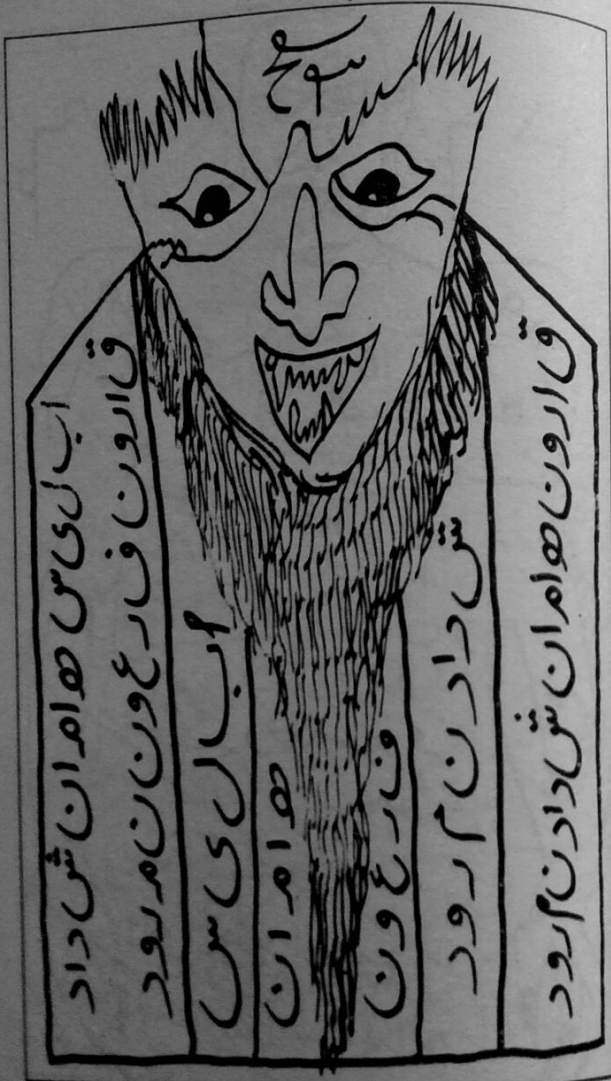 ق ارون هام ان ش داد ن م رود
ش داد ن م رود
ف ارع ون
هام ان
اب ال ی س
ق ارون ف ارع ون ن م رود
اب ال ی س هام ان ش داد